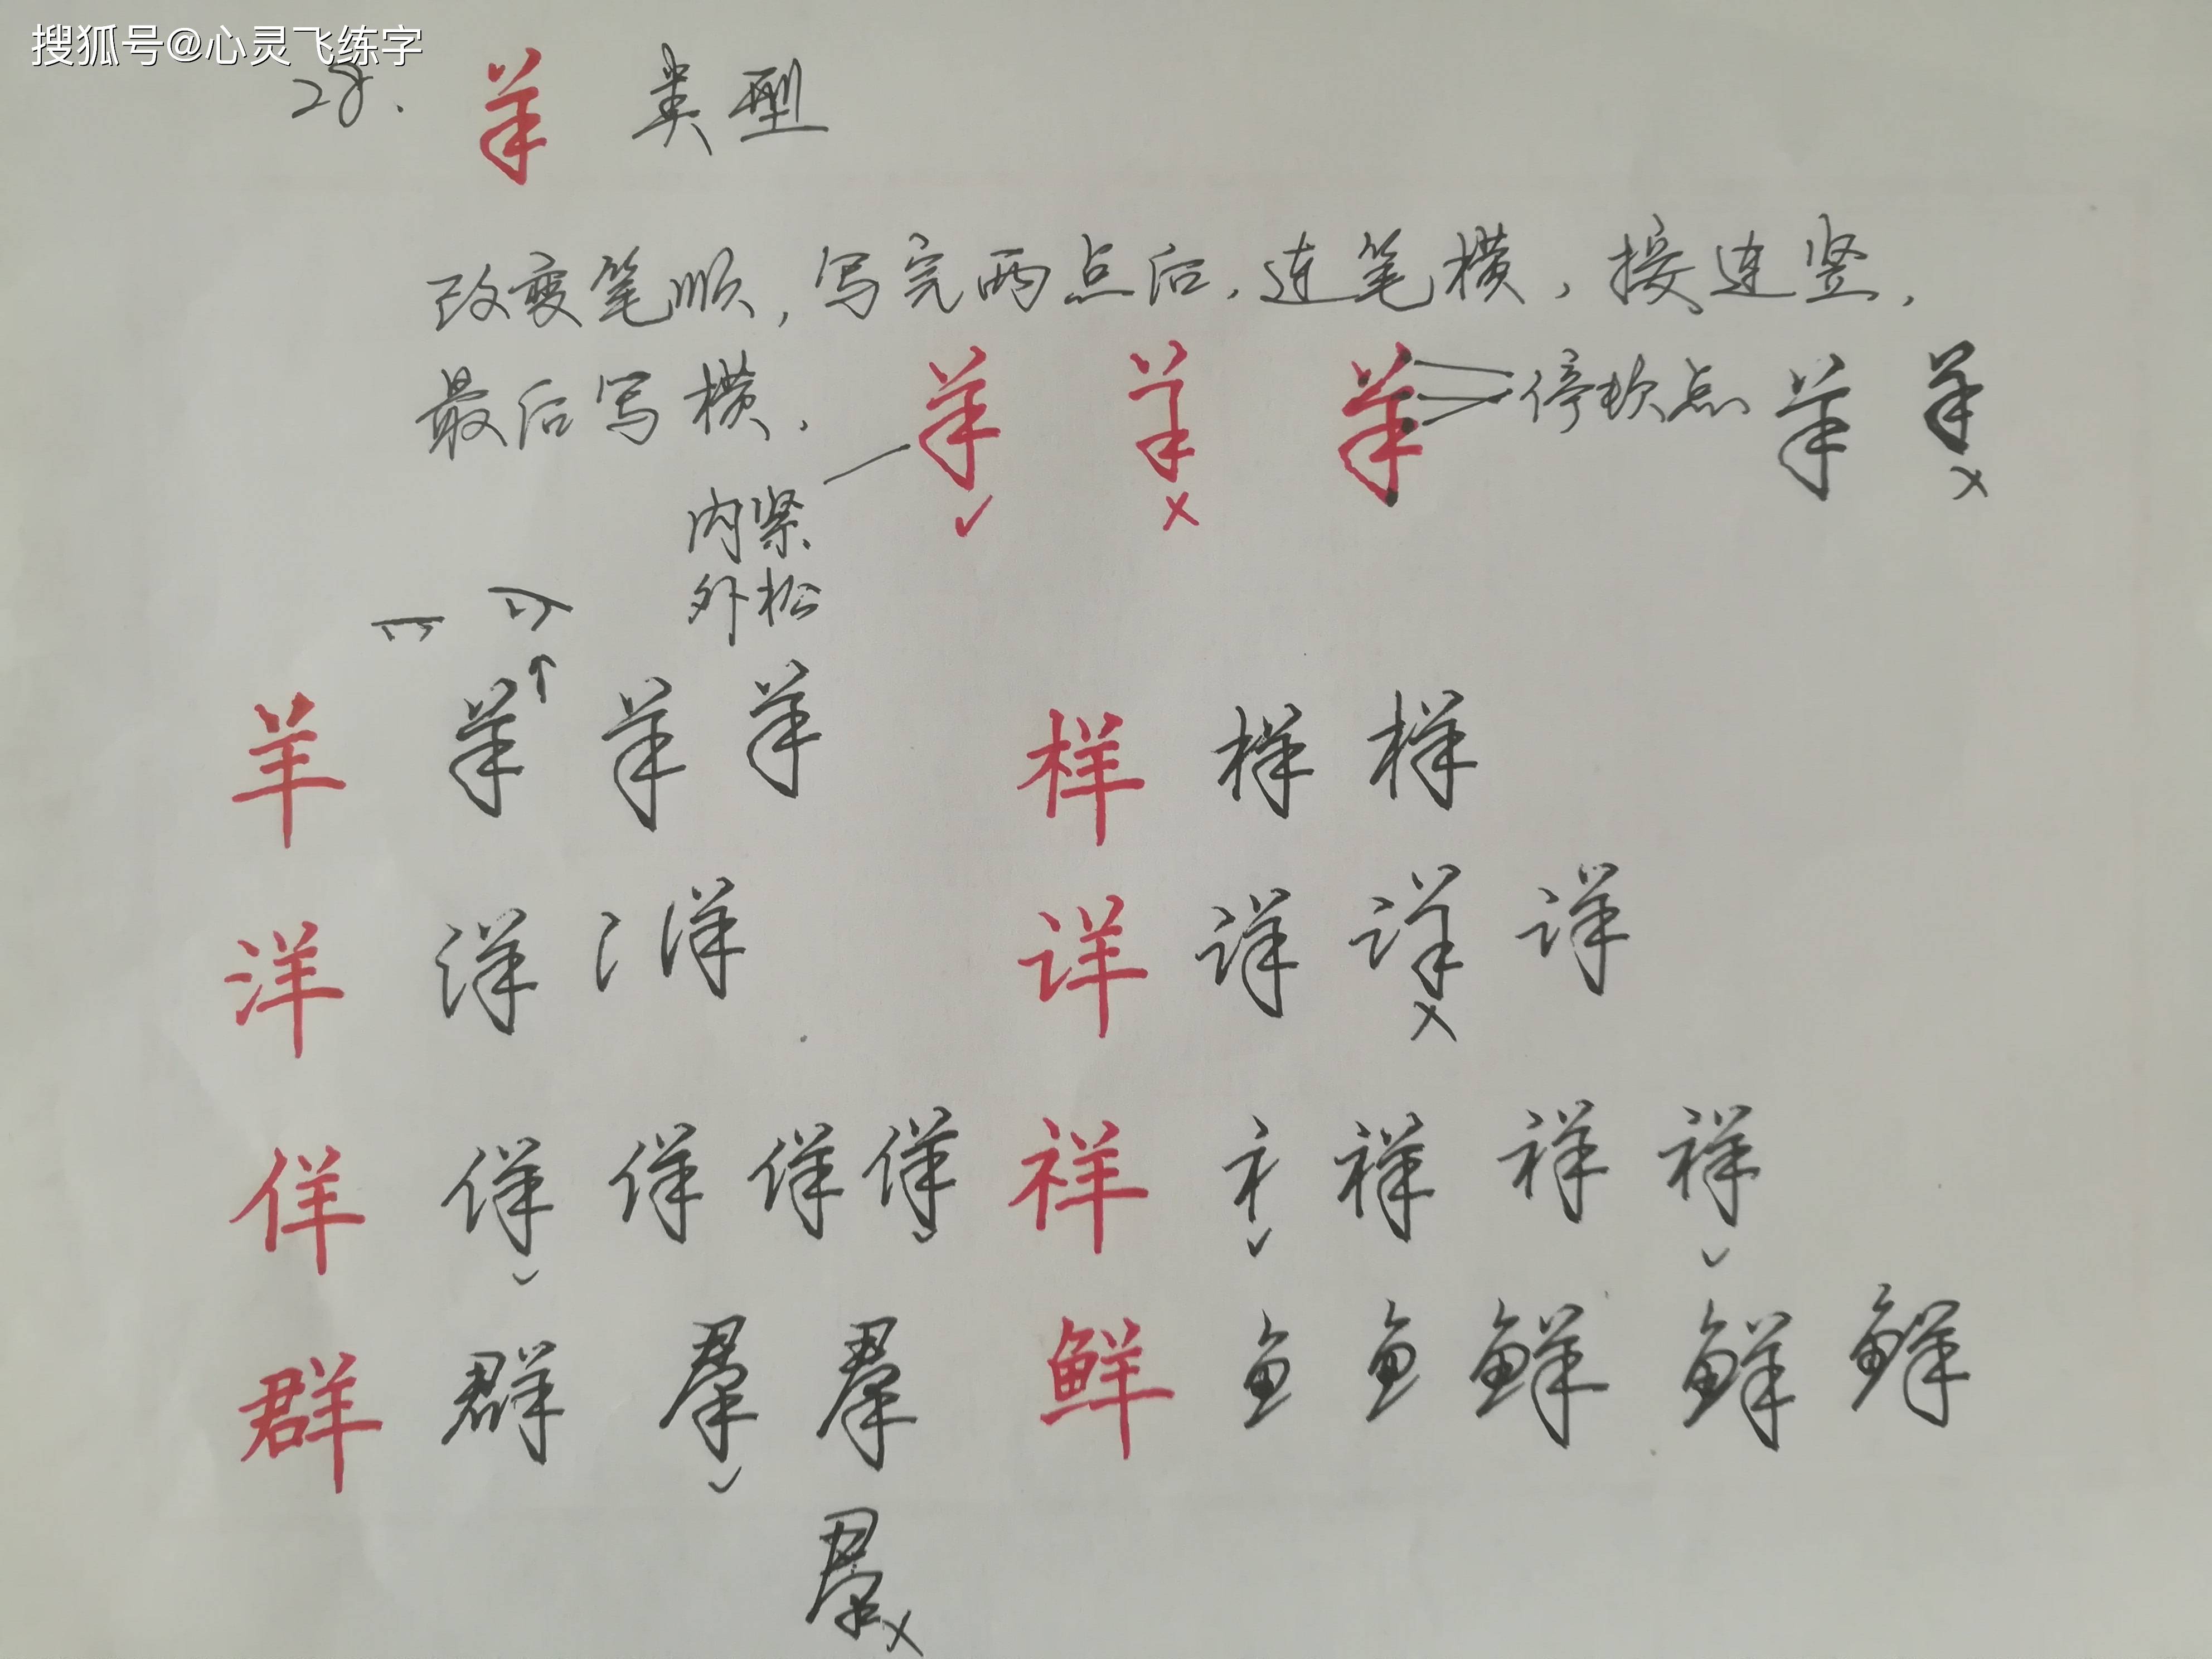 搜狐号@心灵飞练字
28. 羊 类型
改变笔顺，写完两点后，连笔横，接连竖，
最后写横． 羊 ✓ 羊 × 羊 停顿点 羊 羊 ×
内紧
外松
羊 羊 羊 羊 样 样 样
洋 洋 氵 洋 详 详 详 × 详
佯 佯 佯 佯 佯 祥 礻 祥 祥 祥
群 群 羣 羣 鲜 鱼 鱼 鲜 鲜 鲜
羣 ×